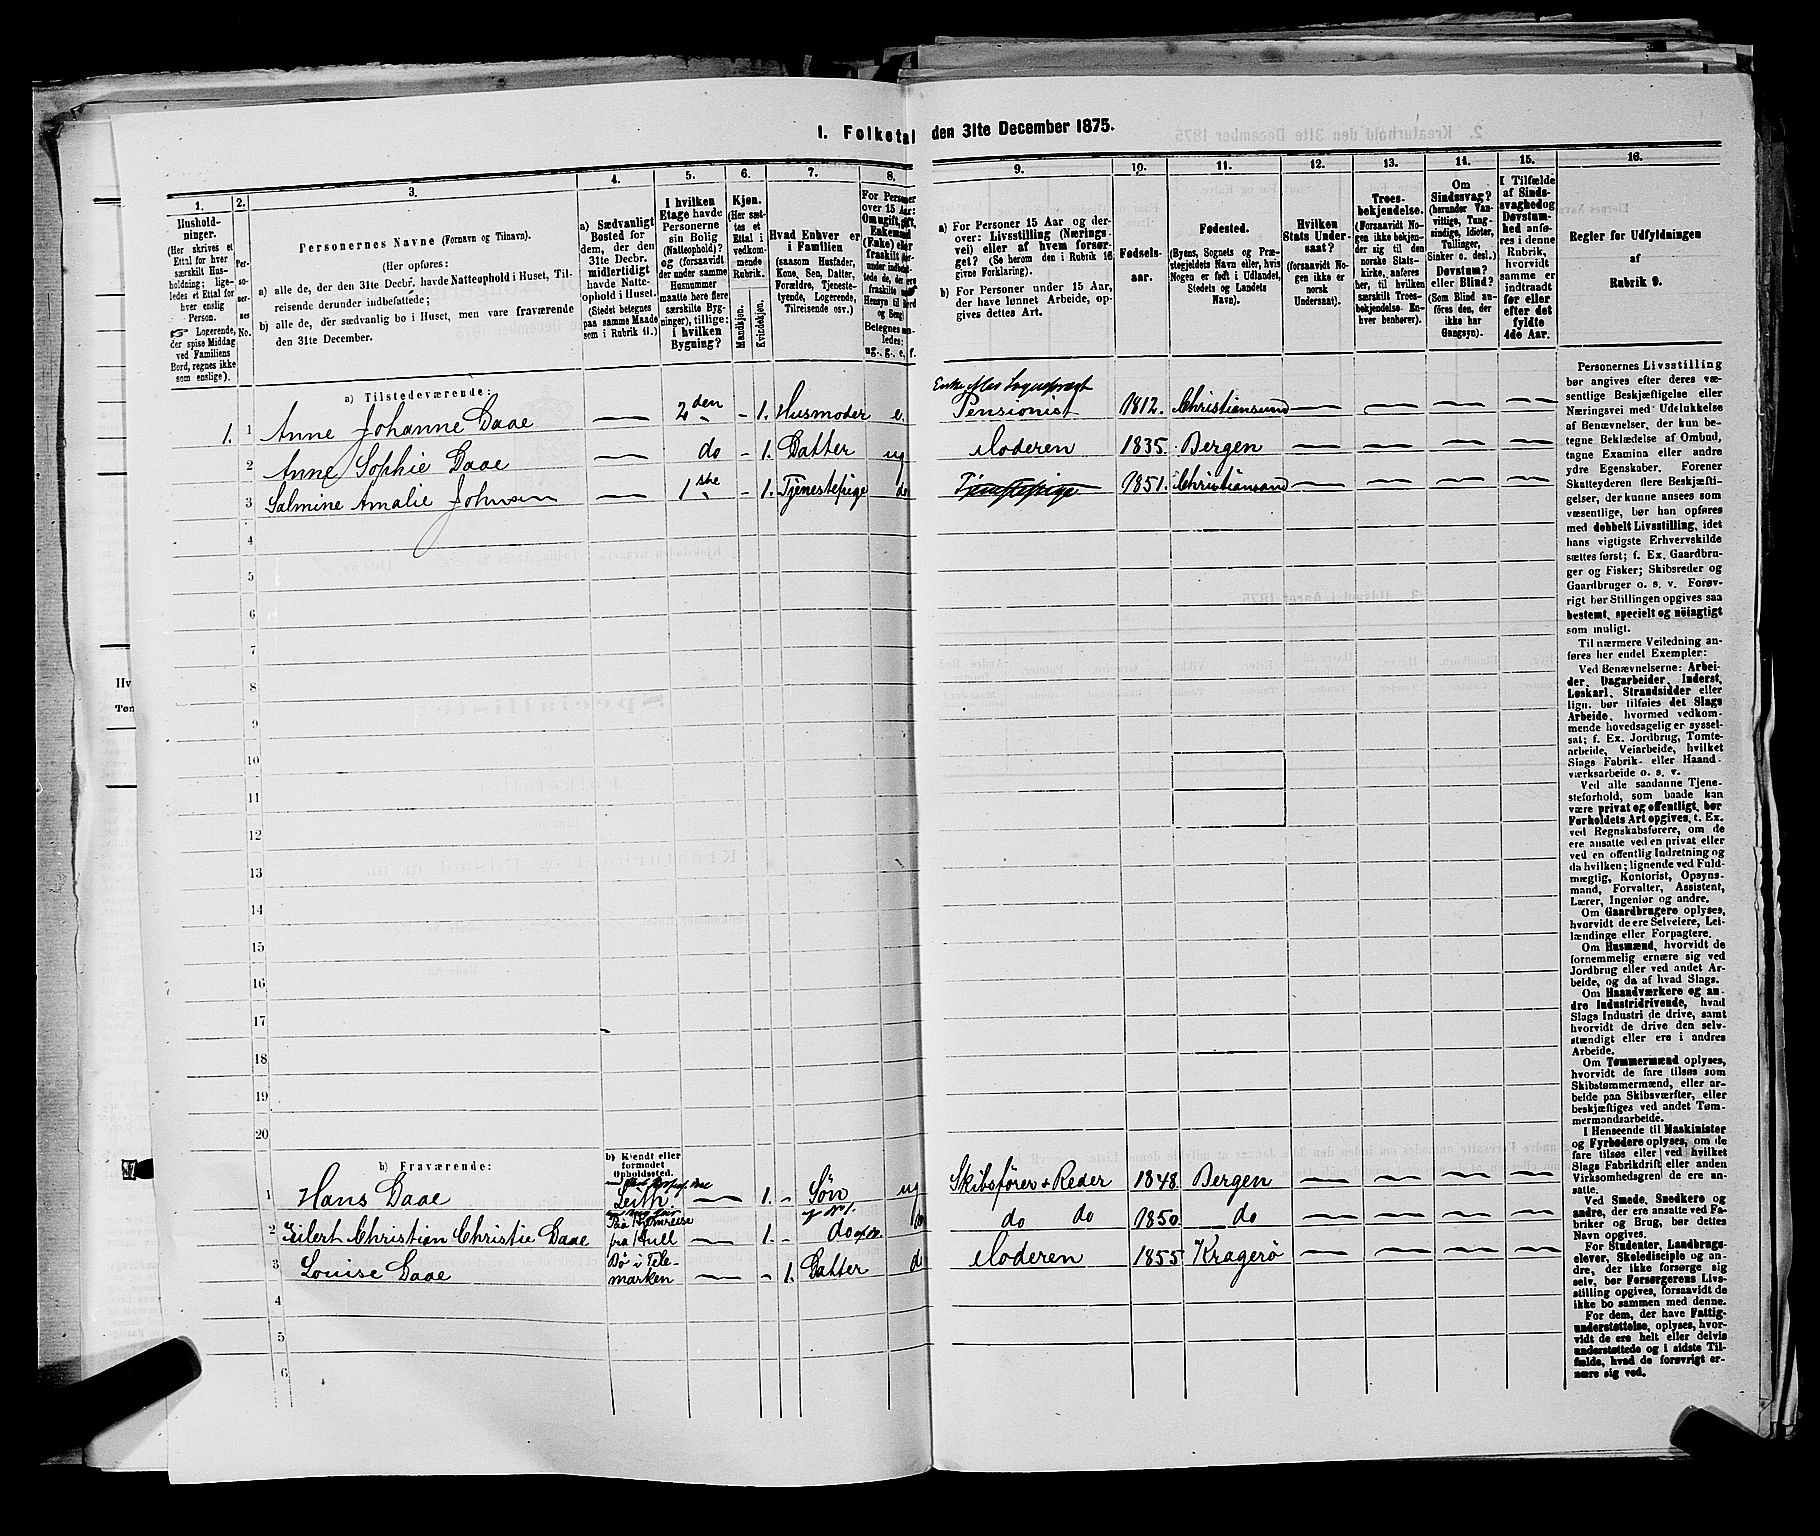 1. Folketal den 31te December 1875.
1.
Hushold-
ninger.
(Her skrives et
Ettal for hver
særskilt Hus-
holdning; lige-
ledes et Ettal for
hver enslig
Person.
☞ Logerende,
der spise Middag
ved Familiens
Bord, regnes ikke
som enslige).
2.
Per-
so-
ner-
nes
No.
3.
Personernes Navne (Fornavn og Tilnavn).
(Her opføres:
a) alle de, der den 31te Decbr. havde Natteophold i Huset, Til-
reisende derunder indbefattede;
b) alle de, der sædvanlig bo i Huset, men vare fraværende
den 31te December.
4.
a) Sædvanligt
Bosted for
dem, der den
31te Decbr.
midlertidigt
havde Natte-
ophold i Huset.
(Stedet betegnes
paa samme Maade
som i Rubrik 11.)
5.
I hvilken
Etage havde
Personerne
sin Bolig
(Natteophold)?
og (forsaavidt
der under samme
Husnummer
maatte høre flere
særskilte Byg-
ninger), tillige:
i hvilken
Bygning?
6.
Kjøn.
(Her sæt-
tes et
Ettal i
vedkom-
mende
Rubrik.
Mandkjøn.
Kvindekjøn.
7.
Hvad Enhver er
i Familien
(saasom Husfader,
Kone, Søn, Datter,
Forældre, Tjeneste-
tyende, Logerende,
Tilreisende osv.)
8.
For Personer
over 15 Aar:
Om ugift, gift,
Enkemand
(Enke) eller
fraskilt
Betegnes saa-
ledes:
ug., g., e., f.
9.
a) For Personer 15 Aar og der-
over: Livsstilling (Nærings-
vei) eller af hvem forsør-
get? (Se herom den i Rubrik 16
givne Forklaring).
b) For Personer under 15 Aar,
der have lønnet Arbeide, op-
gives dettes Art.
10.
Fødsels-
aar.
11.
Fødested.
(Byens, Sognets og Præ-
stegjeldets Navn eller, hvis
Nogen er født i Udlandet,
Stedets og Landets
Navn).
12.
Hvilken
Stats Under-
saat?
(forsaavidt No-
gen ikke er
norsk
Undersaat).
13.
Troes-
bekjendelse.
(Forsaavidt No-
gen ikke bekjen-
der sig til den
norske Stats-
kirke, anføres
her, til hvilken
særskilt Troes-
bekjendelse En-
hver benhører).
14.
Om
Sindssvag?
(herunder Van-
vittige, Tung-
sindige, Idioter,
Tullinger,
Sinker o. desl.)
Døvstum?
eller Blind?
(Som Blind an-
føres den, der
ikke har
Gangsyn).
15.
I Tilfælde
af Sinds-
svaghed og
Døvstum-
hed anfø-
res i denne
Rubrik,
hvorvidt
samme er
indtraadt
før eller
efter det
fyldte
4de Aar.
16.
Regler for Udfyldningen
af
Rubrik 9.
a) Tilstedeværende:
1. 1 Anne Johanne Daae — 2den " - 1. Husmoder e. Pensionist 1812. Christiansund — — — —
2 Anne Sophie Daae — do - 1. Datter ug Moderen 1835. Bergen — — — —
3 Salmine Amalie Johnsen — 1ste " - 1. Tjenestepige do Tjenestepige 1851. Christiansand — — — —
4
5
6
7
8
9
10
11
12
13
14
15
16
17
18
19
20
b) Fraværende:
b) Kjendt eller
formodet
Opholdssted.
1 Hans Daae Leith — 1. - Søn ug Skibsfører + Reder 1848. Bergen — — — —
2 Eilert Christian Christie Daae Paa Hjemreise fra Hull — 1. do do do 1850. do — — — —
3 Louise Daae Bø i Tele-marken — - 1. Datter do Moderen 1855 Kragerø — — — —
4
5
6
Personernes Livsstilling
bør angives efter deres væ-
sentlige Beskjæftigelse eller
Næringsvei med Udelukkelse
af Benævnelser, der kun be-
tegne Beklædelse af Ombud,
tagne Examina eller andre
ydre Egenskaber. Forener
Skatteyderen flere Beskjæfti-
gelser, der kunne ansees som
væsentlige, bør han opføres
med dobbelt Livsstilling, idet
hans vigtigste Erhvervskilde
sættes først; f. Ex. Gaardbru-
ger og Fisker; Skibsreder og
Gaardbruger o. s. v. Forøv-
rigt bør Stillingen opgives saa
bestemt, specielt og nöiagtigt
som muligt.
Til nærmere Veiledning an-
føres her endel Exempler:
Ved Benævnelserne: Arbei-
der, Dagarbeider, Inderst,
Løskarl, Strandsidder eller
lign. bør tilføies det Slags
Arbeide, hvormed vedkom-
mende hovedsagelig er syssel-
sat; f. Ex. Jordbrug, Tomte-
arbeide, Veiarbeide, hvilket
Slags Fabrik- eller Haand-
værksarbeide o. s. v.
Ved alle saadanne Tjene-
steforhold, som baade kan
være privat og offentligt, bør
Forholdets Art opgives, t. Ex.
ved Regnskabsførere, om de
ere ansatte ved en privat eller
ved en offentlig Indretning og
da hvilken; lignende ved Fuld-
mægtig, Kontorist, Opsyns-
mand, Forvalter, Assistent,
Lærer, Ingeniør og andre.
Om Gaardbrugere oplyses,
hvorvidt de ere Selveiere, Lei-
lændinge eller Forpagtere.
Om Husmænd, hvorvidt de
fornemmelig ernære sig ved
Jordbrug eller ved andet Ar-
beide, og da af hvad Slags.
Om Haandværkere og an-
dre Industridrivende, hvad
Slags Industri de drive, samt
hvorvidt de drive den selv-
stændigt eller ere i andres
Arbeide.
Om Tømmermænd oplyses,
hvorvidt de fare tilsøs som
Skibstømmermænd, eller ar-
beide paa Skibsværfter, eller
beskjæftiges ved andet Tøm-
mermandsarbeide.
I Henseende til Maskinister
og Fyrbødere oplyses, om de
fare tilsøs eller ved hvilket
Slags Fabrikdrift eller anden
Virksomhedsgren de ere an-
satte.
Ved Smede, Snedkere og
andre, der ere ansatte ved Fa-
briker og Brug, bør dettes
Navn opgives.
For Studenter, Landbrugs-
elever, Skoledisciple og an-
dre, der ikke forsørge sig
selv, bør Forsørgerens Livs-
stilling opgives, forsaavidt de
ikke bo sammen med denne.
For dem, der have Fattig-
understøttelse, oplyses, hvor-
vidt de ere helt eller delvis
understøttede og i sidste Til-
fælde, hvad de forøvrigt er-
nære sig ved.